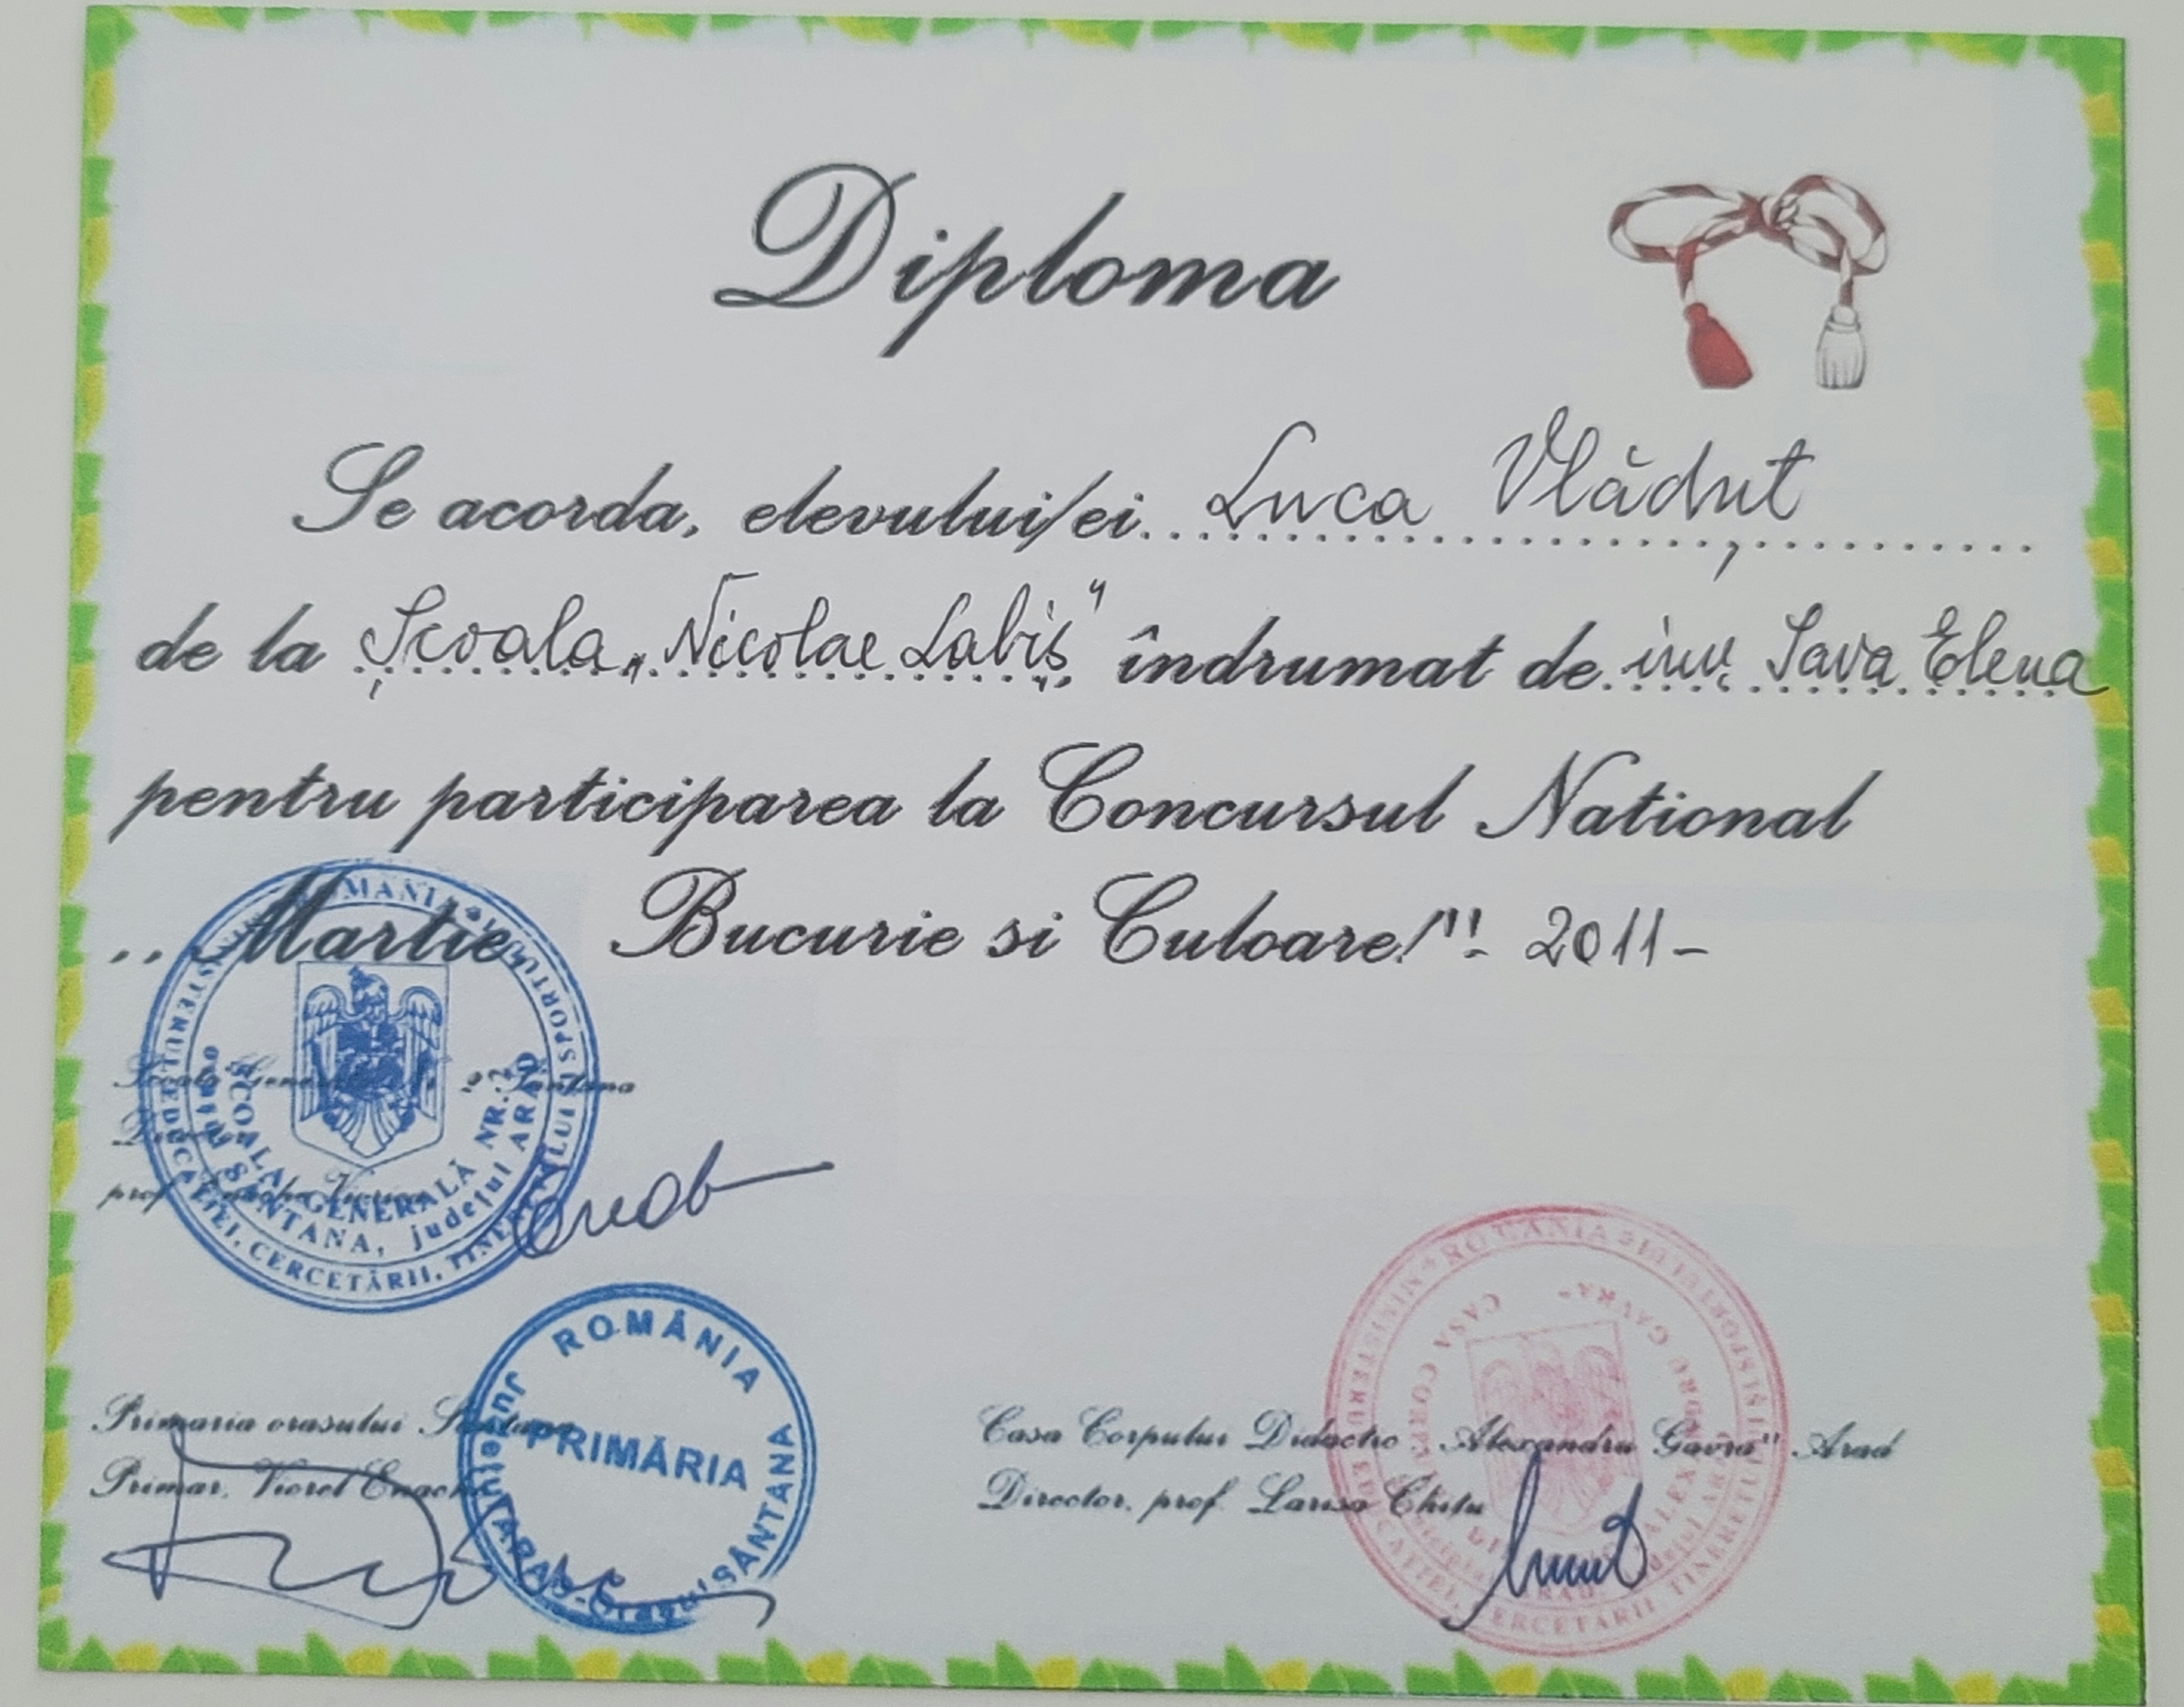 Diploma
Se acorda, elevului/ei Luca Vlăduț
de la Școala „Nicolae Labiș” îndrumat de înv. Sava Elena
pentru participarea la Concursul National
,, Martie Bucurie si Culoare!'' - 2011 -
Scoala Generala Nr 2 Santana
Director
prof. Viorica
ROMANIA * MINISTERUL EDUCAȚIEI, CERCETĂRII, TINERETULUI ȘI SPORTULUI
ȘCOALA GENERALĂ NR. 2
orașul SÂNTANA, județul ARAD
Primaria orasului Santana
Primar, Viorel Enache
ROMÂNIA
PRIMĂRIA
Județul ARAD - Orașul SÂNTANA
Casa Corpului Didactic Alexandru Gavra'' Arad
Director, prof. Larisa Chitu
ROMANIA * MINISTERUL EDUCAȚIEI, CERCETĂRII, TINERETULUI ȘI SPORTULUI
CASA CORPULUI DIDACTIC "ALEXANDRU GAVRA"
ARAD, județul ARAD